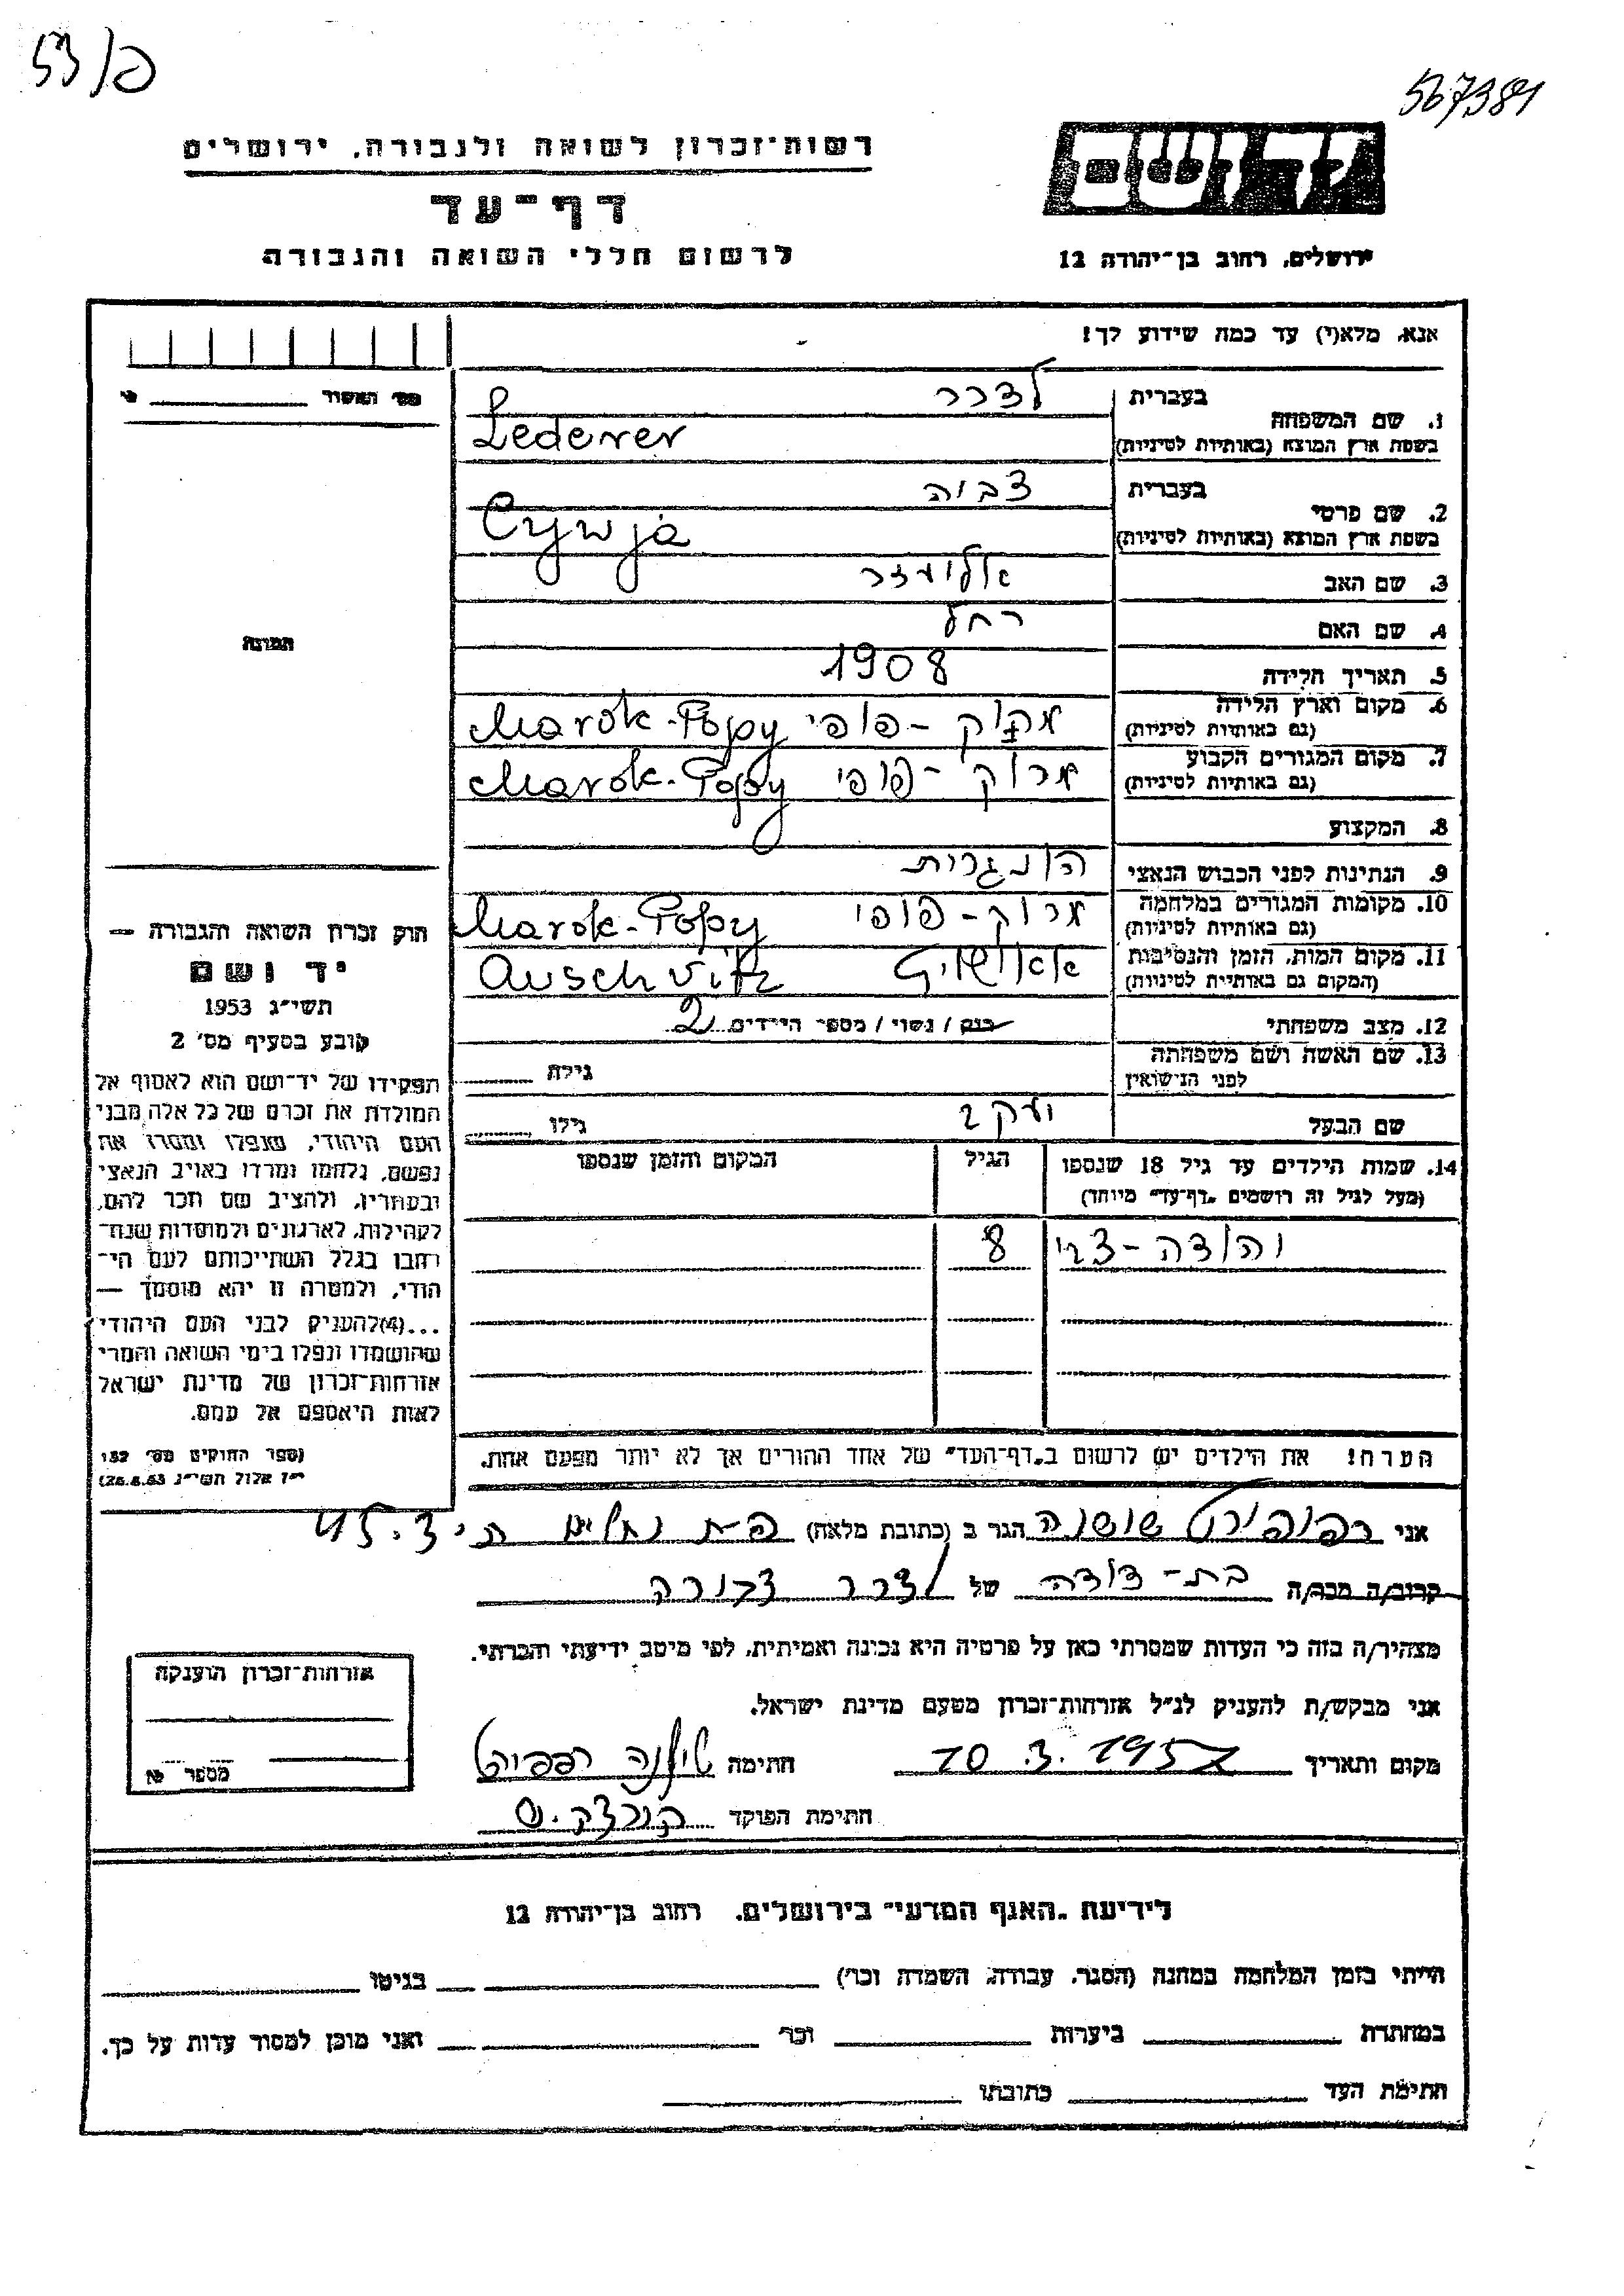 פ/53
567381
רשות־זכרון לשואה ולגבורה, ירושלים
דף־עד
לרשום חללי השואה והגבורה
יד ושם
ירושלים, רחוב בן־יהודה 12
אנא, מלא(י) עד כמה שידוע לך!
מס' האשור
1. שם המשפחה בעברית לדרר
בשפת ארץ המוצא (באותיות לטיניות) Lederer
2. שם פרטי בעברית צביה
בשפת ארץ המוצא (באותיות לטיניות) Cywja
3. שם האב אליעזר
4. שם האם רחל
5. תאריך הלידה 1908
6. מקום וארץ הלידה מרוק - פופי Marok-Popy
(גם באותיות לטיניות)
7. מקום המגורים הקבוע מרוק - פופי Marok-Popy
(גם באותיות לטיניות)
8. המקצוע
9. הנתינות לפני הכבוש הנאצי הונגרית
10. מקומות המגורים במלחמה מרוק - פופי Marok-Popy
(גם באותיות לטיניות)
11. מקום המות, הזמן והנסיבות אאושויץ Auschvitz
(המקום גם באותיות לטיניות)
12. מצב משפחתי רווק / נשוי / מספר הילדים 2
13. שם האשה ושם משפחתה
לפני הנישואין גילה
שם הבעל יעקב גילו
14. שמות הילדים עד גיל 18 שנספו הגיל המקום והזמן שנספו
(מעל לגיל זה רושמים "דף־עד" מיוחד)
יהודה - צבי 8
הערה! את הילדים יש לרשום ב"דף־העד" של אחד ההורים אך לא יותר מפעם אחת.
התמונה
חוק זכרון השואה והגבורה —
יד ושם
תשי"ג 1953
קובע בסעיף מס' 2
תפקידו של יד־ושם הוא לאסוף אל
המולדת את זכרם של כל אלה מבני
העם היהודי, שנפלו ומסרו את
נפשם, נלחמו ומרדו באויב הנאצי
ובעוזריו, ולהציב שם וזכר להם,
לקהילות, לארגונים ולמוסדות שנח־
רבו בגלל השתייכותם לעם הי־
הודי, ולמטרה זו יהא מוסמך —
...(4) להעניק לבני העם היהודי
שהושמדו ונפלו בימי השואה והמרי
אזרחות־זכרון של מדינת ישראל
לאות היאספם אל עמם.
(ספר החוקים מס' 132
י"ז אלול תשי"ג 26.8.53)
אני רפופורט שושנה הגר ב (כתובת מלאה)
קרוב/ה מכר/ה בת-דודה של לדרר צביה
מצהיר/ה בזה כי העדות שמסרתי כאן על פרטיה היא נכונה ואמיתית, לפי מיטב ידיעתי והכרתי.
אני מבקש/ת להעניק לנ"ל אזרחות־זכרון מטעם מדינת ישראל.
מקום ותאריך 10.3.1957 חתימה שושנה רפפורט
חתימת הפוקד
אזרחות־זכרון הוענקה
מספר
לידיעת "האגף המדעי" בירושלים, רחוב בן־יהודה 12
הייתי בזמן המלחמה במחנה (הסגר, עבודה, השמדה וכו') בגיטו
במחתרת ביערות וכו' ואני מוכן למסור עדות על כך.
חתימת העד כתובתו